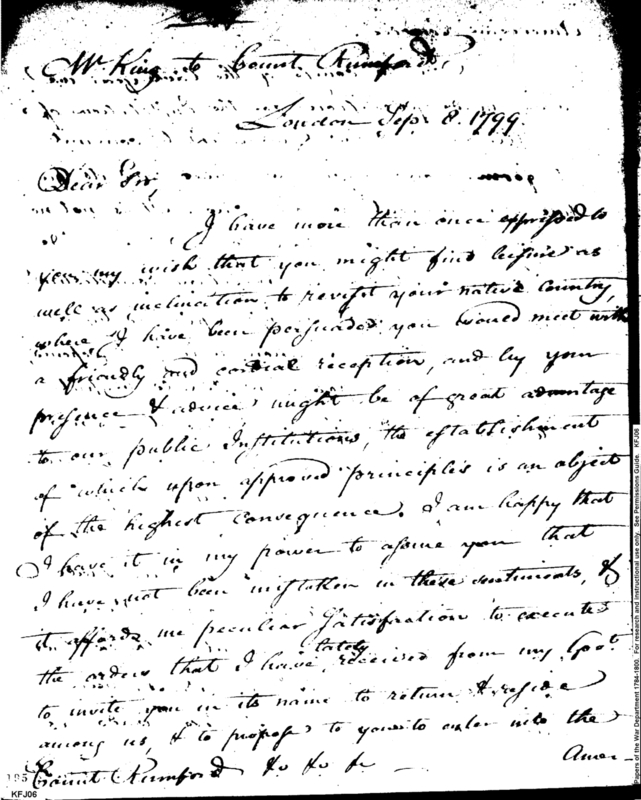 Mr King to Count Rumford,
London Sep. 8. 1799.
Dear Sir,
I have more than once expressed to
you my wish that you might find leisure as
well as inclination to revisit your native Country,
where I have been persuaded you would meet with
a friendly and cordial reception, and by your
presence & advice might be of great advantage
to our public Institutions, the establishment
of which upon approved principles is an object
of the highest consequence. I am happy that
I have it in my power to assure you that
I have not been mistaken in these sentiments, &
it affords me peculiar Satisfaction to execute
the orders that I have lately received from my Govt.
to invite you in its name to return & reside
among us, & to propose to you to enter into the
Amer-
Count Rumford &c &c &c
195
KFJ06
Papers of the War Department 1784-1800. For research and instructional use only. See Permissions Guide. KFJ06